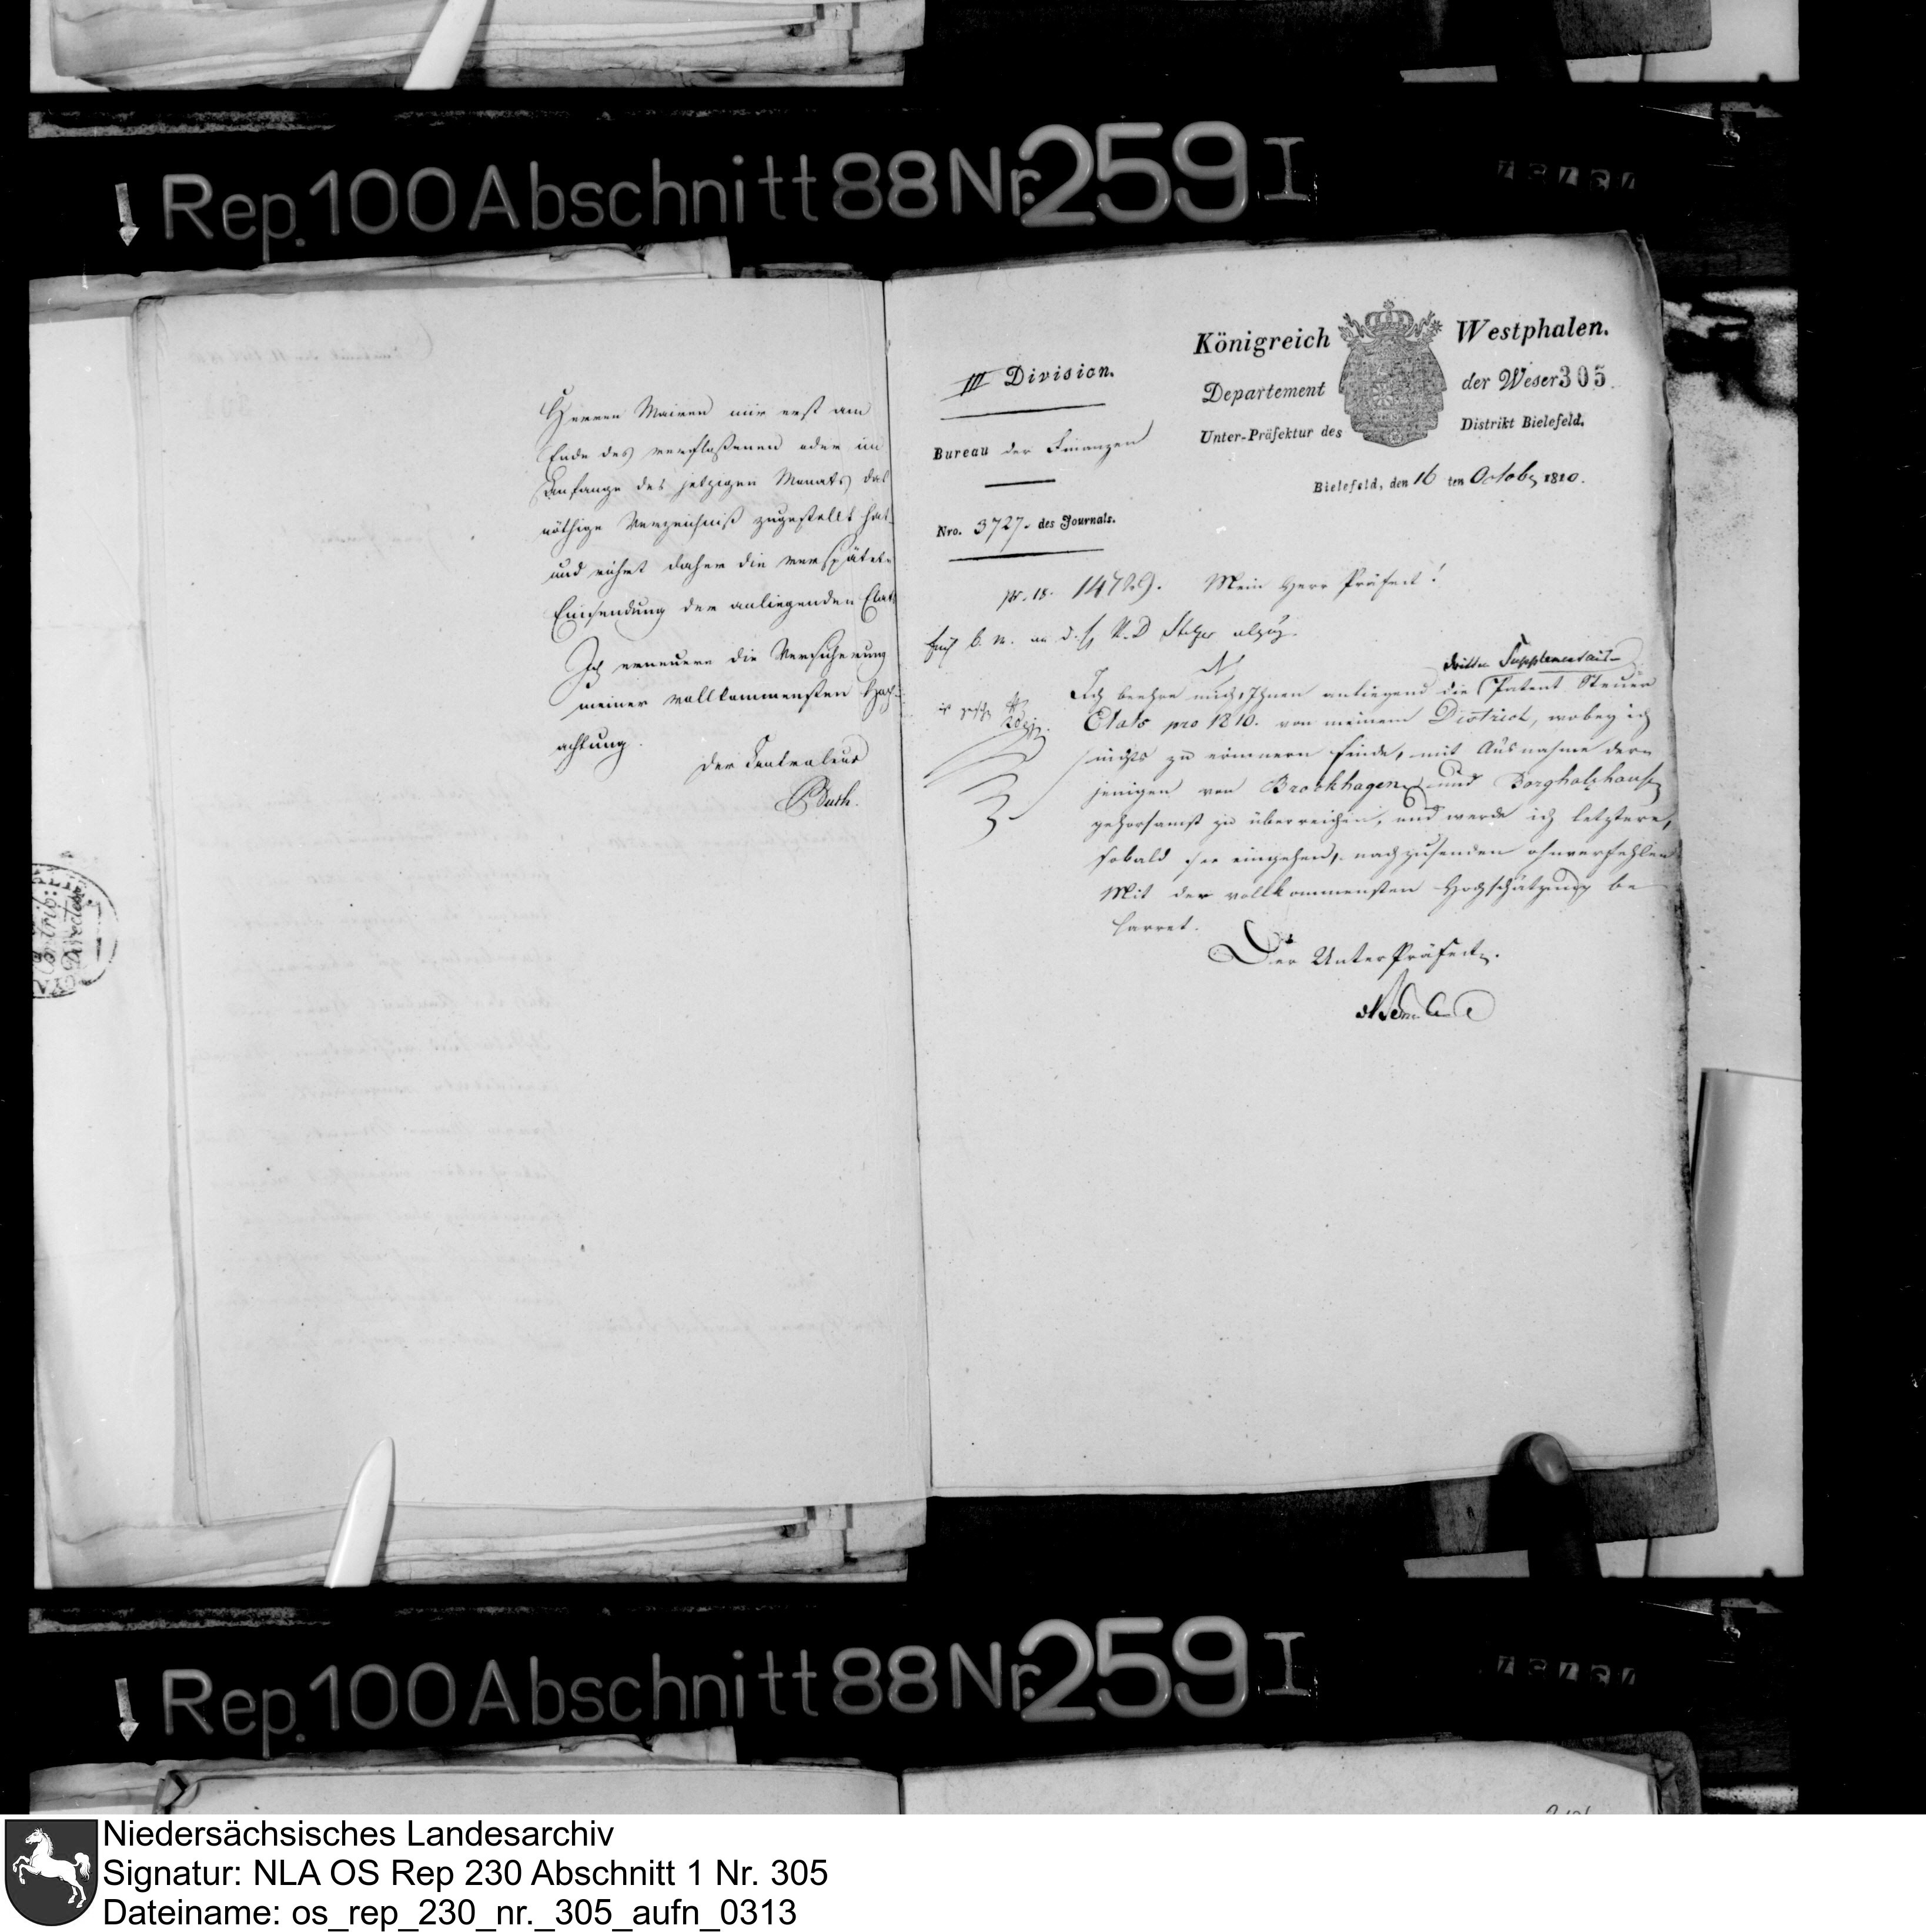 Rep. 100 Abschnitt 88 Nr. 259 I
Herren Mairen mir erst am
Ende des verfloßenen oder im
Anfange des jetzigen Monats das
nöthige Verzeichniß zugestellt hat
und rührt daher die verspätete
Einsendung der anliegenden Etats
Ich erneuere die Versicherung
meiner vollkommensten Hoch-
achtung.
Der Controleur
Königreich Westphalen.
III Division.
Departement der Weser 305.
Unter-Präfektur des Distrikt Bielefeld.
Bureau der Finanzen
Bielefeld, den 16 ten Octobr 1810.
Nro. 3727. des Journals.
pr. 18. 14729. Mein Herr Präfect!
dritte Supplementair-
Ich beehre mich, Ihnen anliegend die Patent Steuer
Etats pro 1810. von meinem District, wobey ich
nichts zu erinnern finde, mit Ausnahme der-
jenigen von Brockhagen und Borgholzhausen
gehorsamst zu überreichen, und werde ich letztere,
sobald sie eingehen, nachzusenden ohnverfehlen
Mit der vollkommensten Hochschätzung be
harret.
Der UnterPräfect.
Rep. 100 Abschnitt 88 Nr. 259 I
Niedersächsisches Landesarchiv
Signatur: NLA OS Rep 230 Abschnitt 1 Nr. 305
Dateiname: os_rep_230_nr._305_aufn_0313